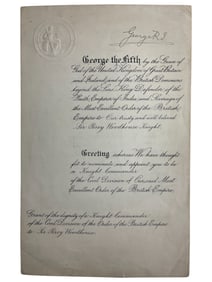 George R.I.
George the Fifth by the Grace of
God of the United Kingdom of Great Britain
and Ireland and of the British Dominions
beyond the Seas King Defender of the
Faith Emperor of India and Sovereign of the
Most Excellent Order of the British
Empire to Our trusty and well beloved
Sir Percy Woodhouse Knight
Greeting whereas We have thought
fit to nominate and appoint you to be
a Knight Commander
of the Civil Division of Our said Most
Excellent Order of the British Empire
Grant of the dignity of a Knight Commander
of the Civil Division of the Order of the British Empire
to Sir Percy Woodhouse